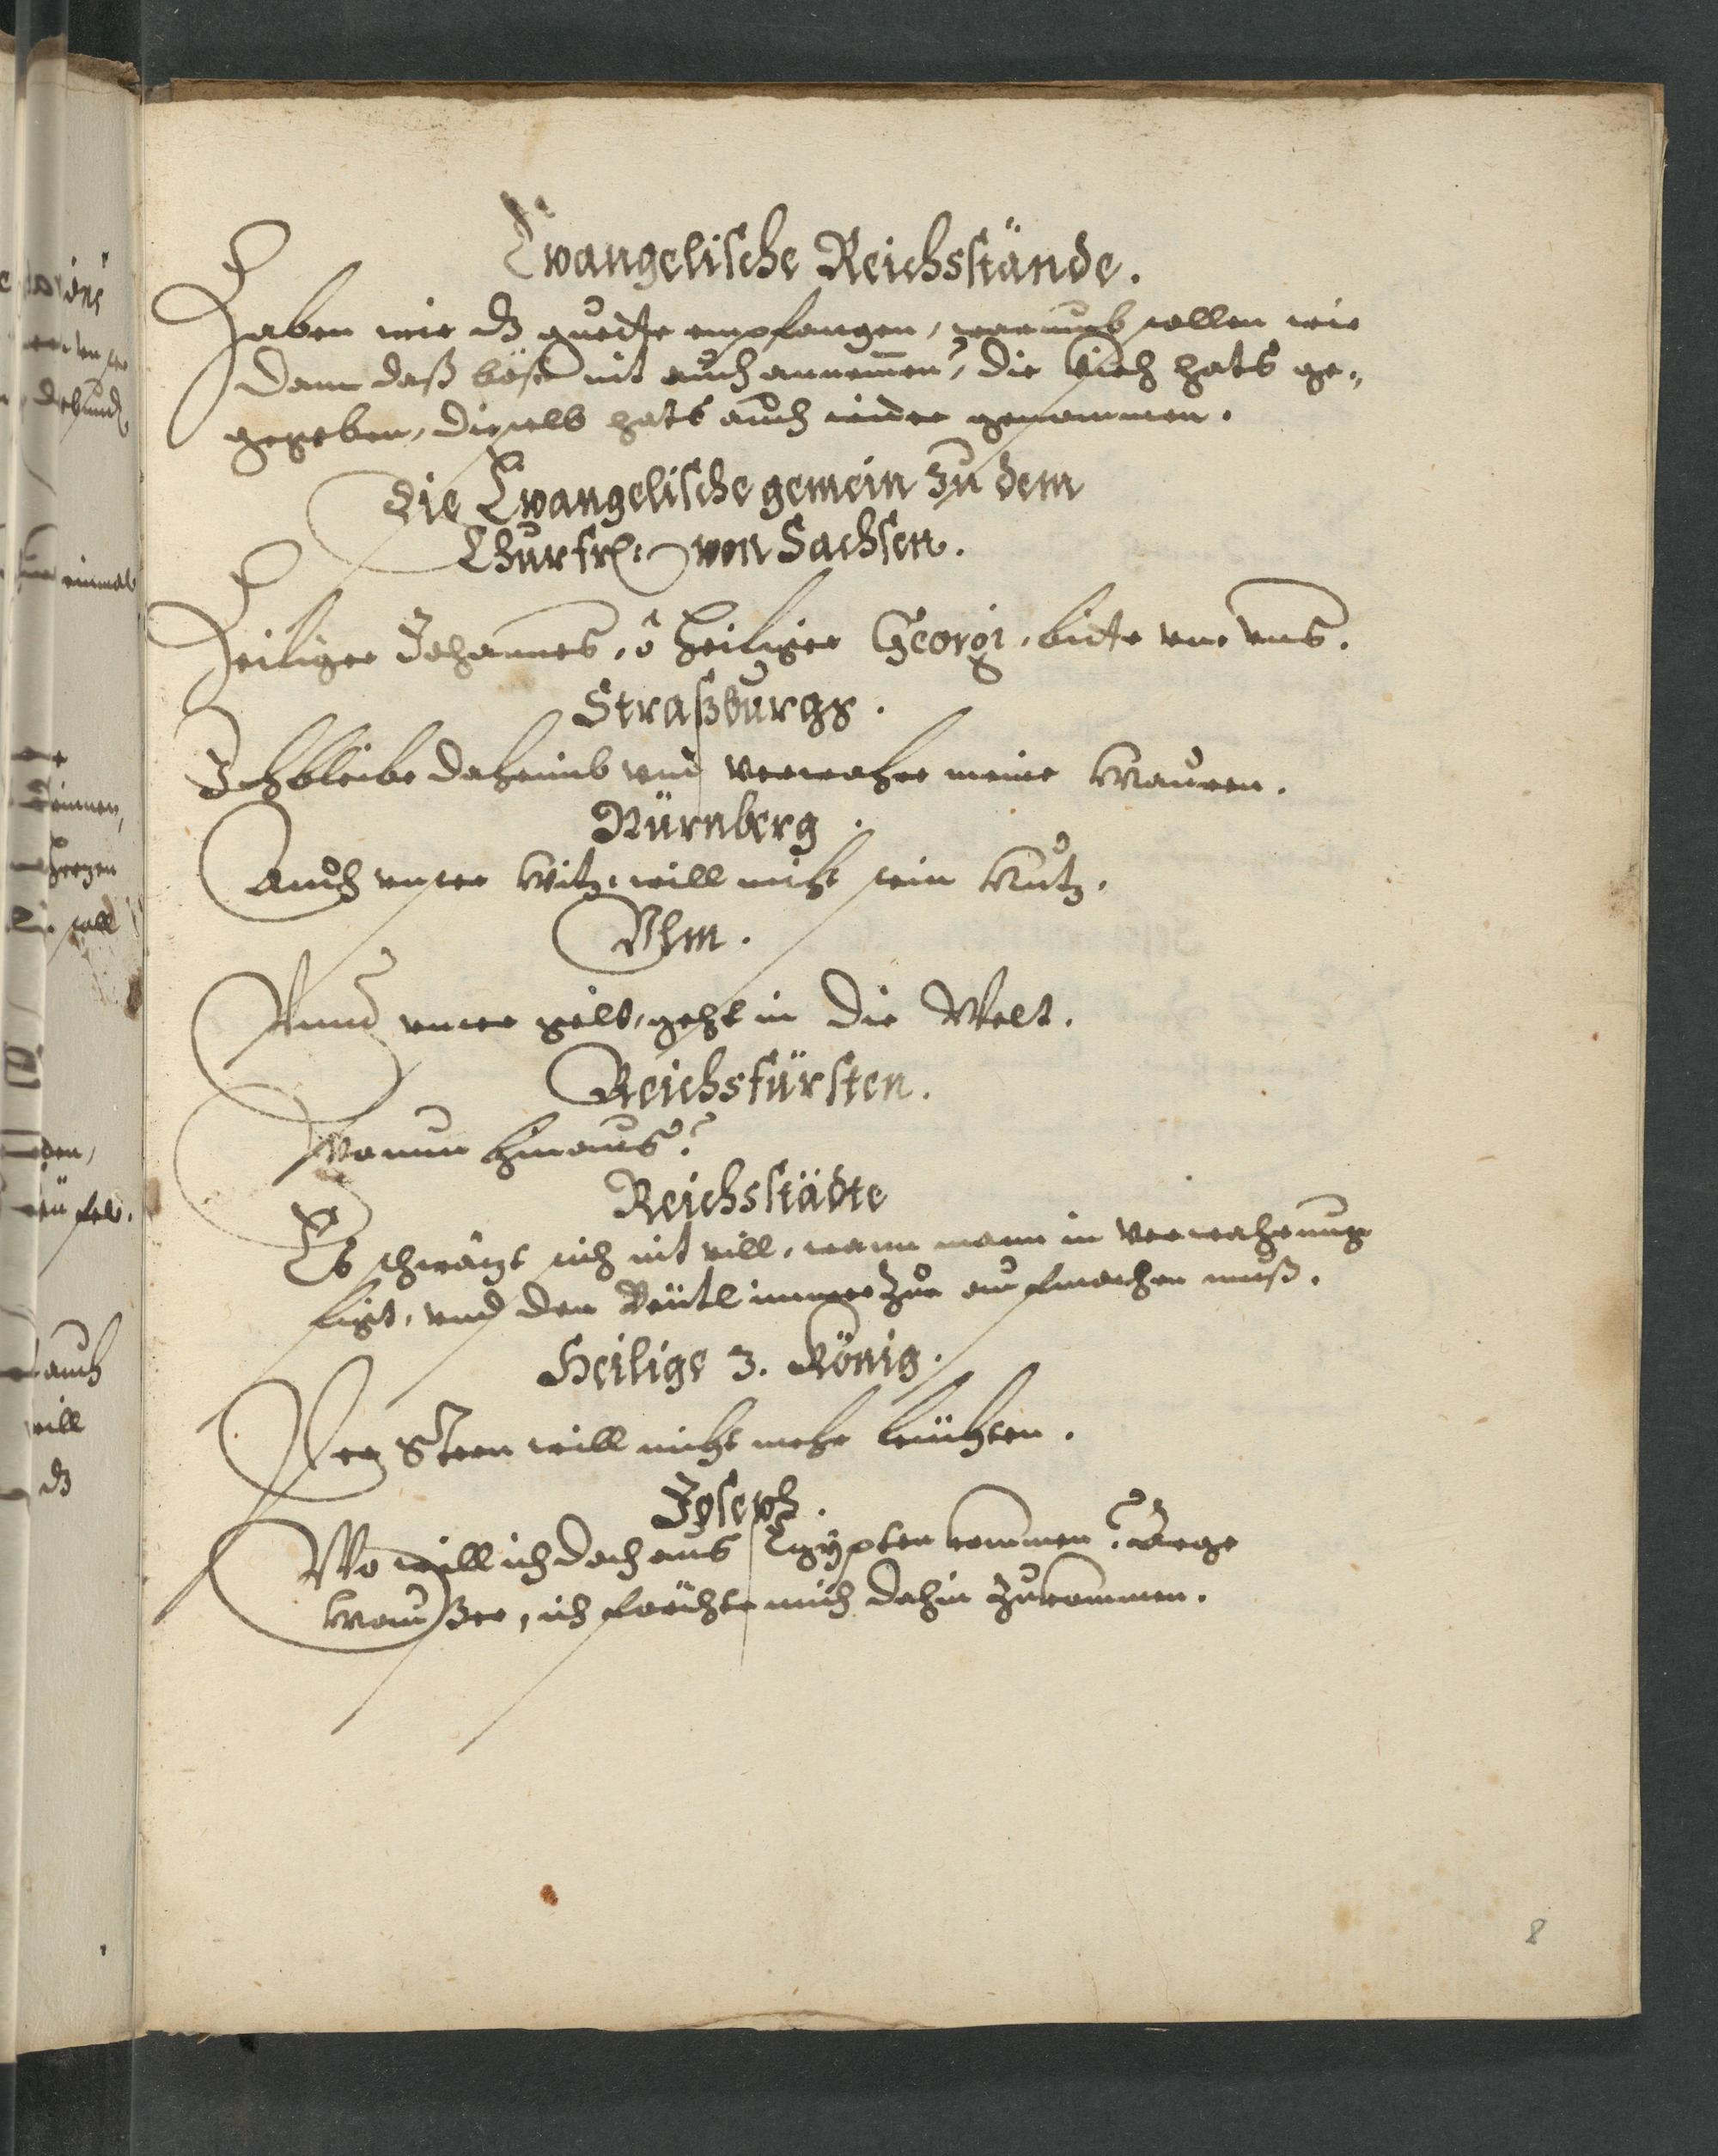 Evangelische Reichsstände.
Haben wir dz guette empfangen, warumb sollen wir
dann daß böse nit auch annemmen, die hats ge-
gegeben, dieselb hats auch wider genommen.
Die Evangelische gemein zu dem
Churfr: von Sachsen.
Heiliger Johannes, ô heiliger Georgi, bitte vor vns.
Straßburgs.
Ich bleibe daheimb vnd verwahre meine Mauren.
Nürnberg.
Auch vnser Witz will nicht sein Nutz.
Vlm.
Vnnd vnser gelt, geht in die Welt.
Reichsfürsten.
Wo nun hinaus?
Reichsstädte
Es schwäzt sich nit vill, wann mann in verwahrung
ligt, vnd den Beütl immerzu aufmachen muß.
Heilige 3. König.
Der Stern will nicht mehr leüchten.
Joseph.
Wo will ich doch aus Egypten kommen?
ich förchte mich dahin zukommen.
8